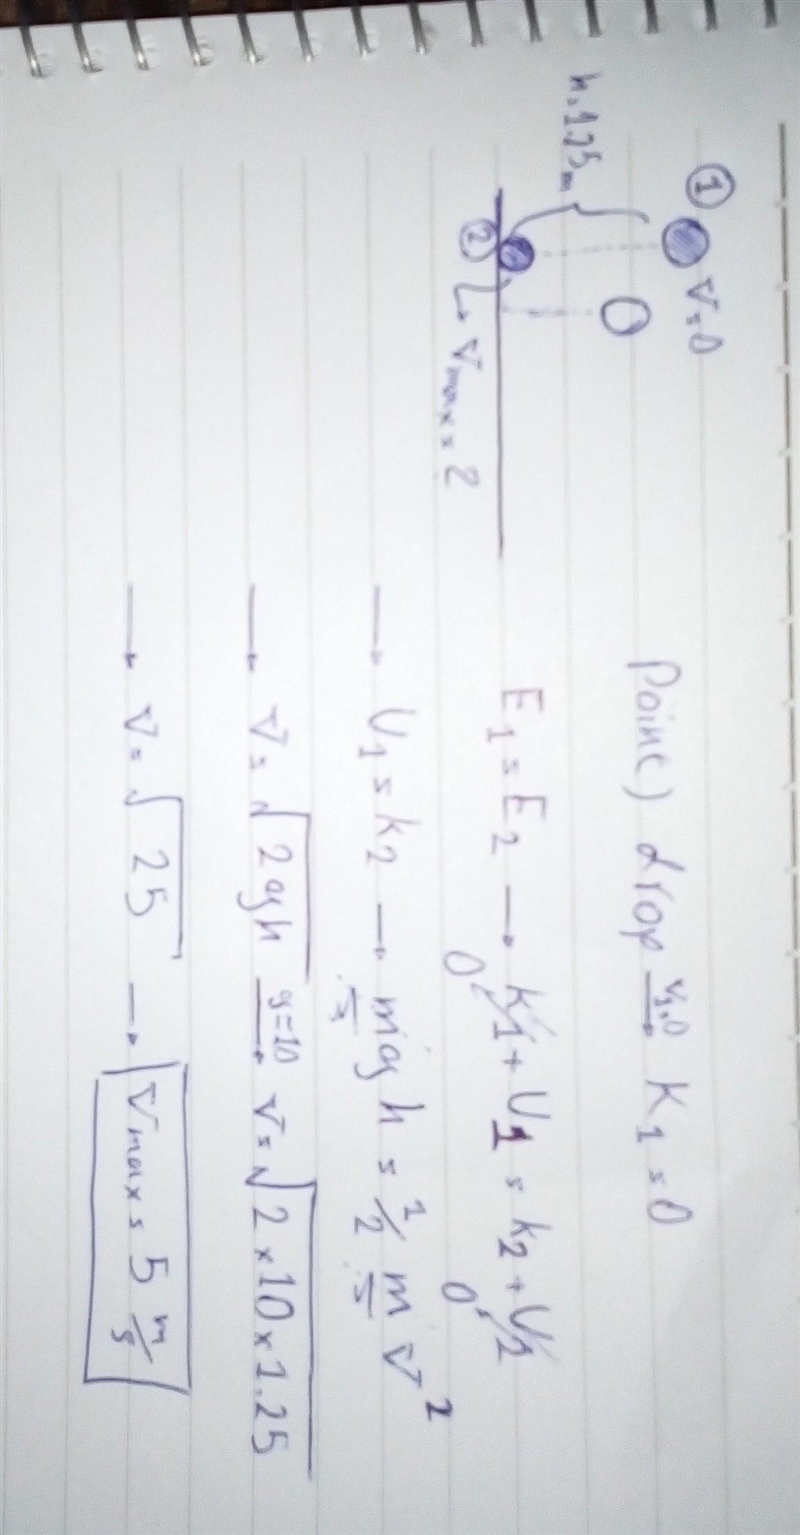 ① V=0
h=1.25m
② → Vmax = ?
Point) drop V1=0→ K1=0
E1=E2 → K1+U1=K2+U2
0 0
→ U1=K2 → mgh=1/2 mV²
→ V=√2gh g=10→ V=√2×10×1.25
→ V=√25 → Vmax=5 m/s